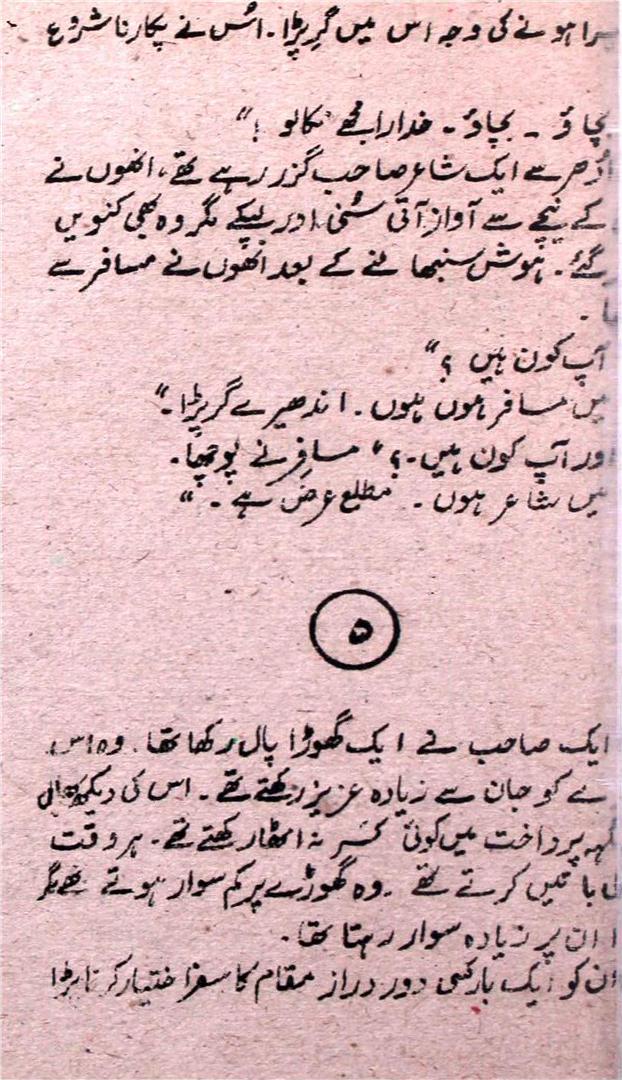 ہونے کی وجہ اس میں گر پڑا۔ اُس نے پکارنا شروع
بچاؤ ۔ بچاؤ ۔ خدارا مجھے نکالو !"
اُدھر سے ایک شاعر صاحب گزر رہے تھے، انھوں نے
کے نیچے سے آواز آتی سُنی اور لپکے مگر وہ بھی کنویں
گئے۔ ہوش سنبھالنے کے بعد انھوں نے مسافر سے
آپ کون ہیں ؟"
میں مسافر ہوں ہوں۔ اندھیرے گر پڑا۔"
اور آپ کون ہیں۔؟" مسافر نے پوچھا۔
میں شاعر ہوں ۔ مطلع عرض ہے ۔ "
۵
ایک صاحب نے ایک گھوڑا پال رکھا تھا۔ وہ اس
ے کو جان سے زیادہ عزیز رکھتے تھے۔ اس کی دیکھ بھال
پرداخت میں کوئی کسر نہ اٹھا رکھتے تھے۔ ہر وقت
باتیں کرتے تھے۔ وہ گھوڑے پر کم سوار ہوتے تھے مگر
ان پر زیادہ سوار رہتا تھا۔
ان کو ایک بار کسی دور دراز مقام کا سفر اختیار کرنا پڑا